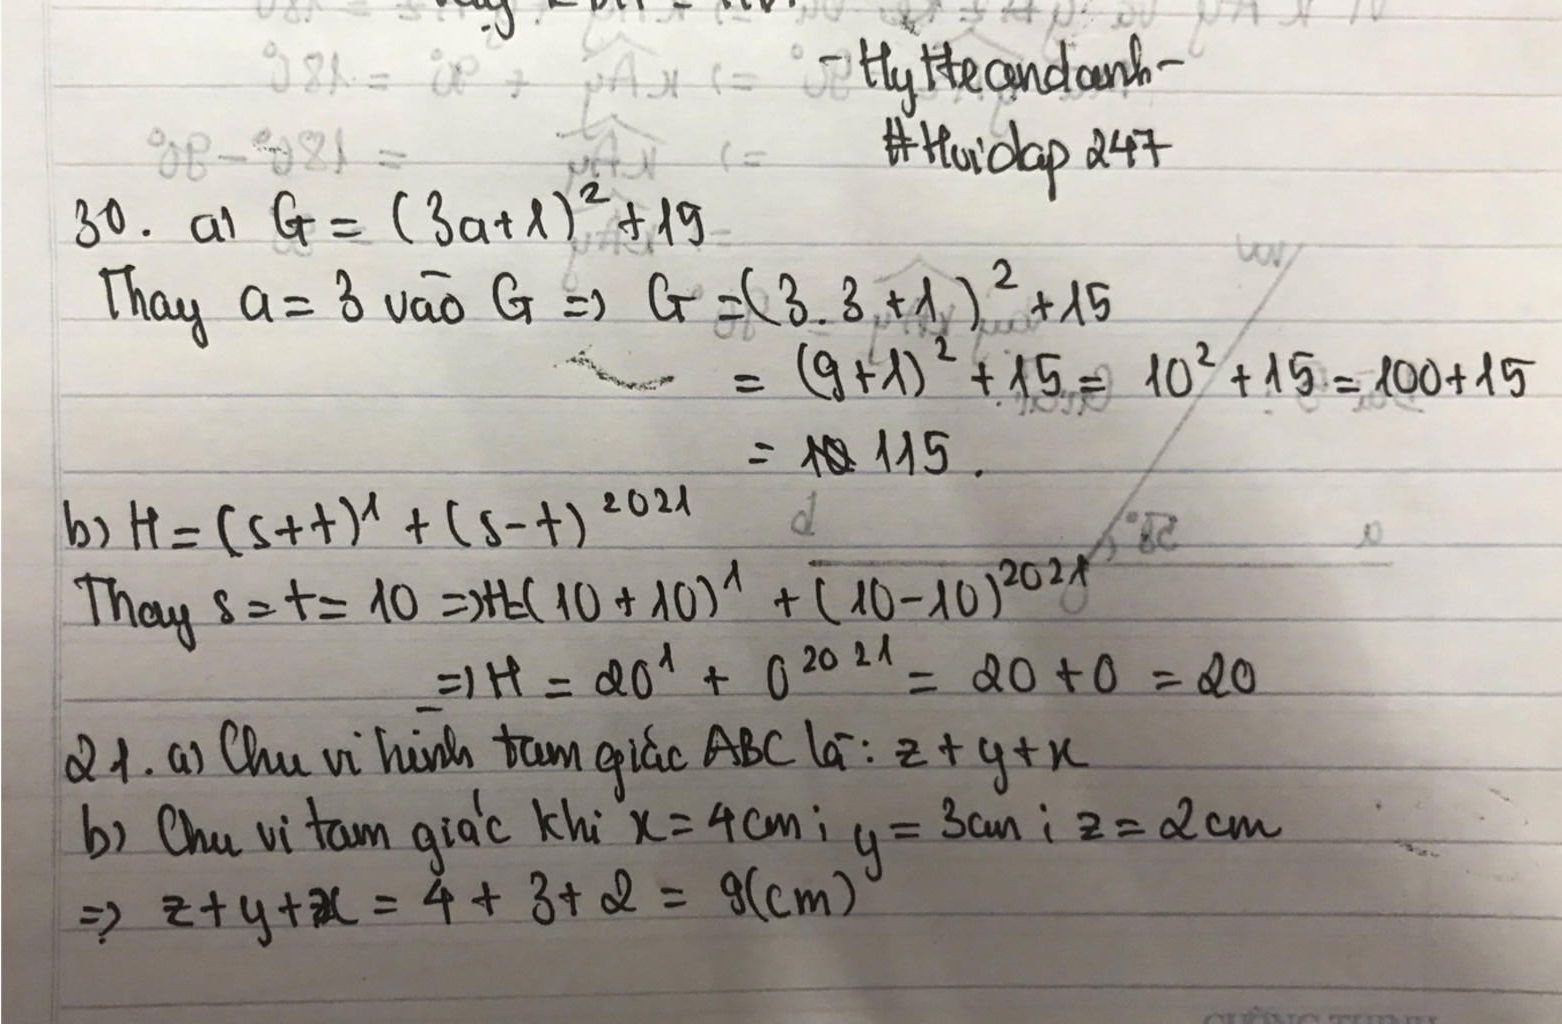 -HyHecandanh-
#Hoidap 247
30. a) G = (3a+1)² +19
Thay a = 3 vào G => G =(3.3+1)² +15
= (9+1)² +15 = 10² +15 = 100+15
= 115.
b) H = (s+t)¹ + (s-t)²⁰²¹
Thay s = t = 10 => H=(10+10)¹ + (10-10)²⁰²¹
=> H = 20¹ + 0²⁰²¹ = 20 +0 = 20
21. a) Chu vi hình tam giác ABC là: z + y + x
b) Chu vi tam giác khi x = 4cm; y = 3cm; z = 2cm
=> z + y + x = 4 + 3 + 2 = 9(cm)